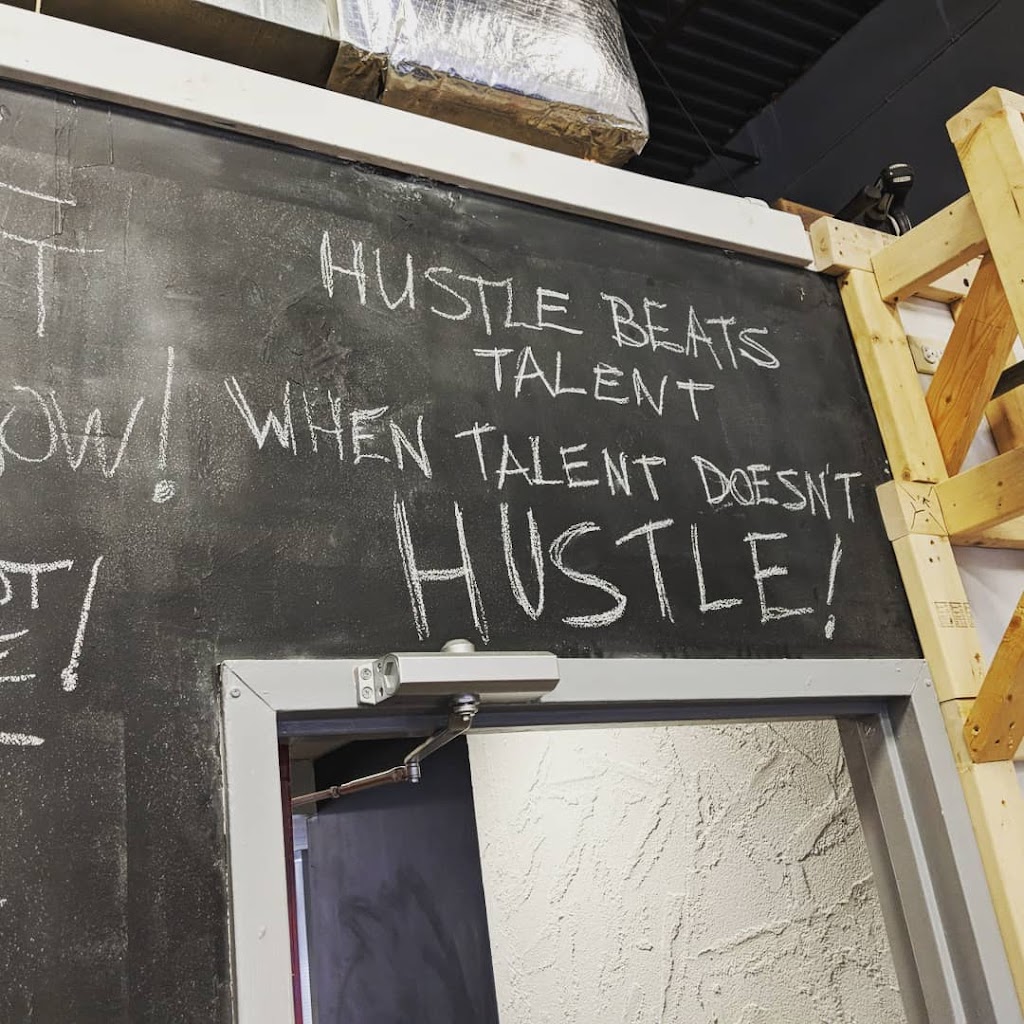 HUSTLE BEATS
TALENT
WHEN TALENT DOESN'T
HUSTLE!